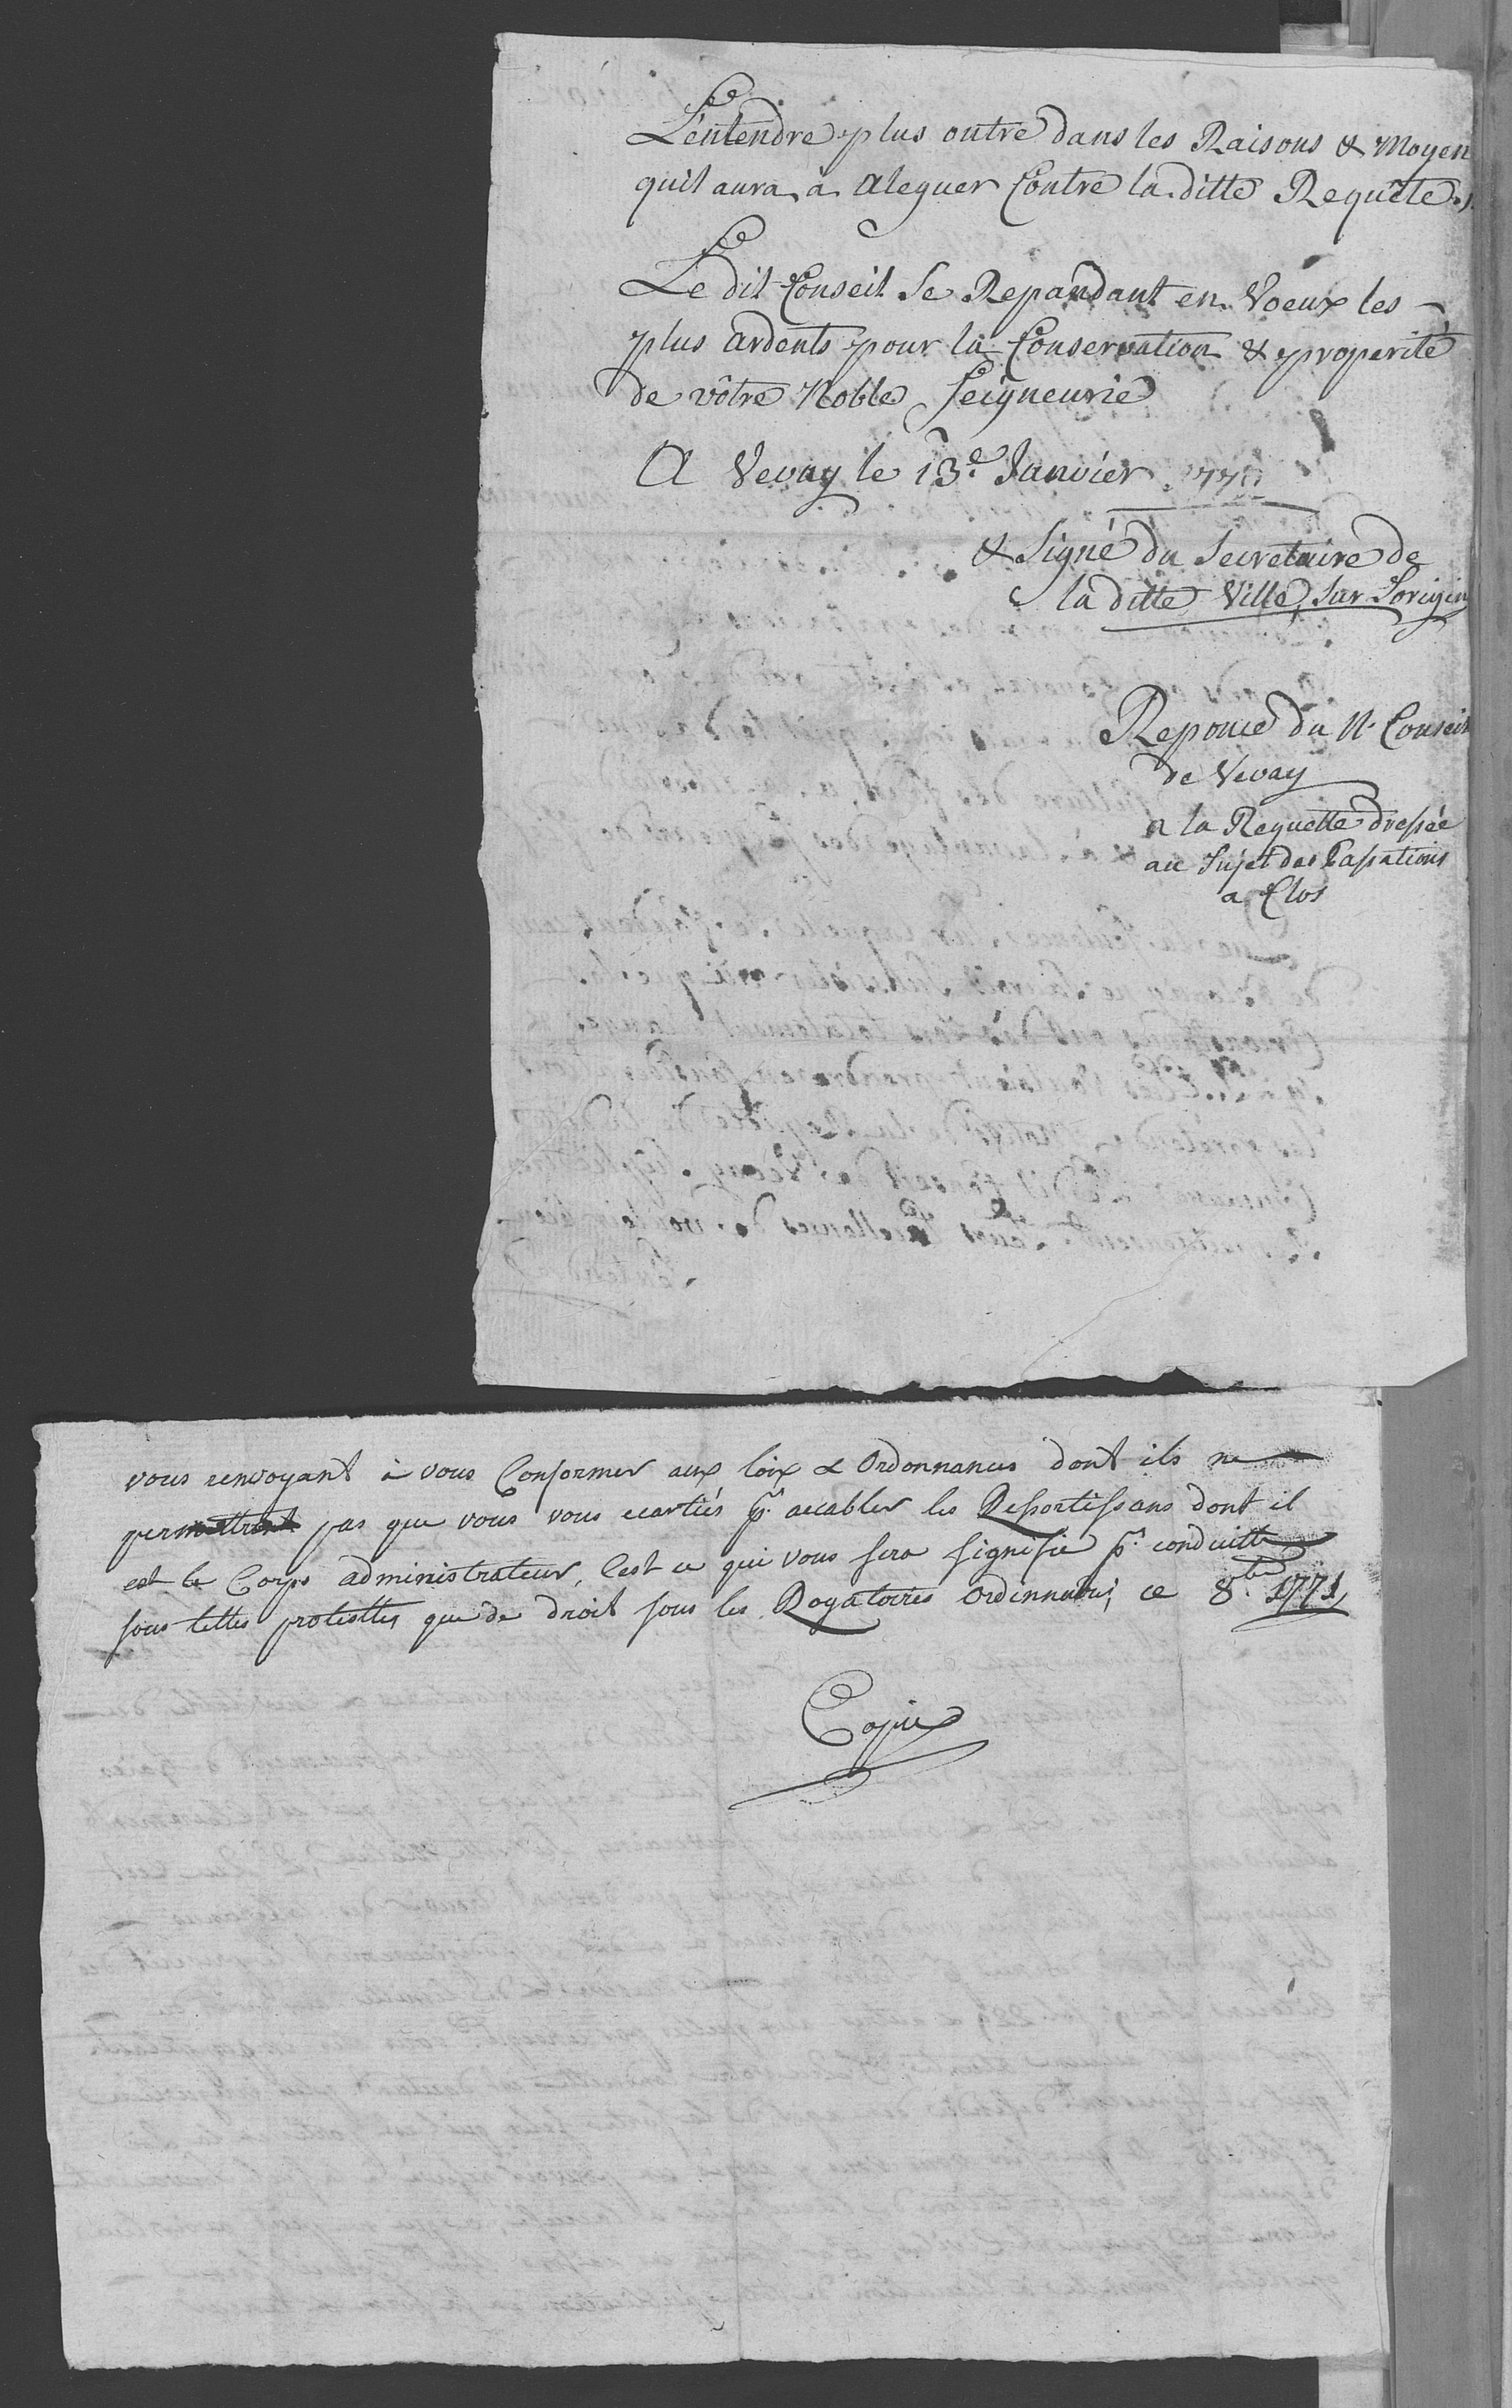 L'entendre plus outre dans les Raisons & Moyen
quil aura a aleguer Contre la ditte Requête.
Le dit Conseil Se Repandant en Voeux les
plus ardents pour la Conservation & properité
de vôtre Noble Seigneurie
A Vevay le 13.e Janvier 177
& Signé du Secretaire de
la ditte Ville, Sur Lorigin
Reponce du N. Conseil
de Vevay
a la Requette dressée
au Sujet des Passations
a Clos
vous renvoyant à vous Conformer aux loix & Ordonnances dont ils ne
permettront pas que vous vous ecartiés pr. accabler les Ressortissans dont il
est le Corps administrateur, C'est ce qui vous sera signifié pr. conduitte
sous telles protestes que de droit sous les Rogatoires Ordinnaires, ce 8.bre 1771,
Copie